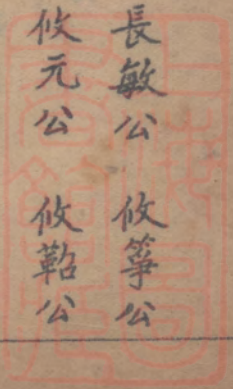 長敏公 攸箏公
攸元公 攸鞀公